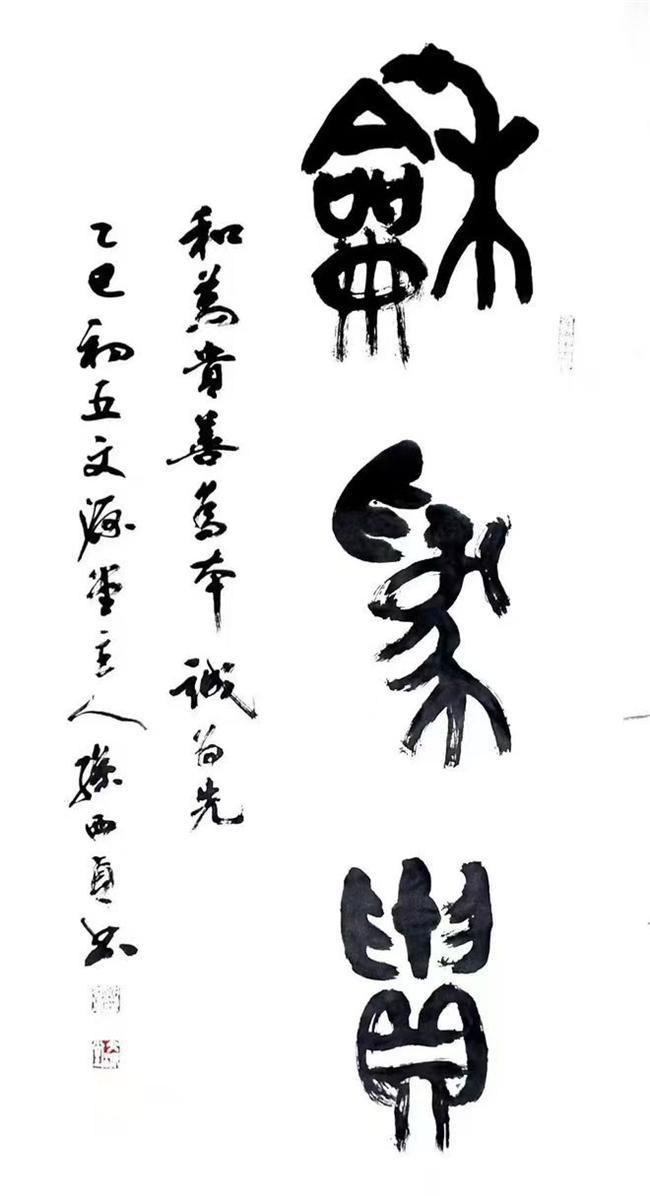 龢為貴
和為貴善為本誠為先
乙巳初五文源堂主人孫西貞书